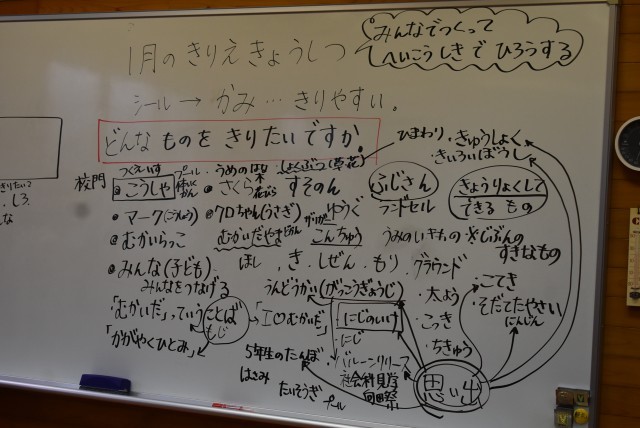 みんなでつくって
へいこうしきで ひろうする
1月の きりえきょうしつ
シール → かみ… きりやすい。
どんな ものを きりたいですか。
ひまわり・きゅうしょく
・きいろいぼうし
校門
つくえいす
・こうしゃ
プール
・うめのはな
・さくら
・しょくぶつ(草花)
すそのん
ふじさん
ランドセル
きょうりょくして
できる もの
・マーク(こうしょう)
・クロちゃん(うさぎ)
ゆうぐ
・むかいらっこ
むかいだやま
こんちゅう
うみのいきもの
※じぶんの
すきなもの
・みんな(子ども)
みんなをつなげる
ほし、き、しぜん、もり、グラウンド
うんどうかい(がっこうぎょうじ)
・太よう
・こっき
・ちきゅう
・こてき
・そだてたやさい
にんじん
「むかいだ」っていう
ことば
もじ
「かがやくひとみ」
「I♡むかいだ」
にじのいけ
・にじ
・バルーンリリース
5年生のたんぼ
社会科見学
向田祭
はさみ
たいそうぎ
プール
思い出